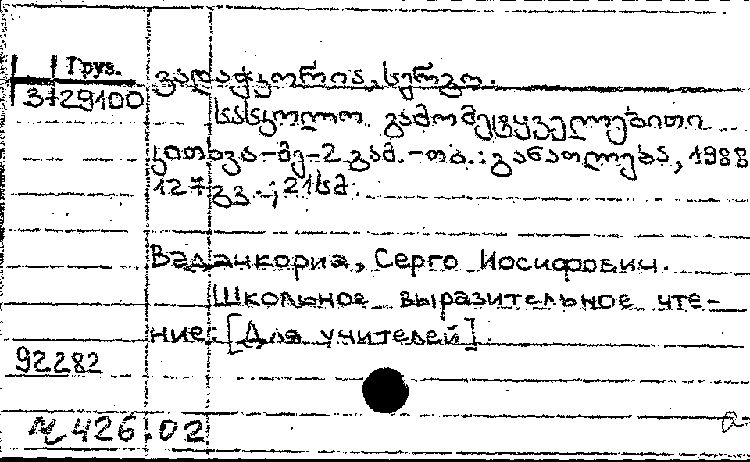 Груз.
3-29100
ვადაჭკორია, სერგო.
სასკოლო გამომეტყველებითი
კითხვა.-მე-2 გამ.-თბ.: განათლება, 1988
127გვ.; 21სმ.
Вадачкория, Серго Иосифович.
Школьное выразительное чте-
ние: [Для учителей].
92282
426.02